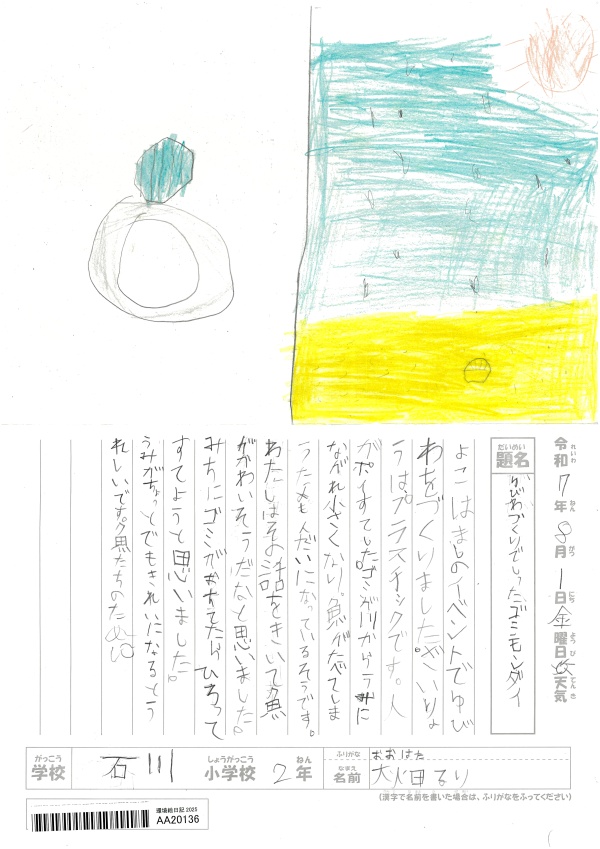 令和7年8月1日金曜日 天気
れいわ ねん がつ にち ようび てんき
だいめい
題名 ゆびわづくりでしったゴミモンダイ
よこはましのイベントでゆび
わをづくりました。ざいりょ
うはプラスチックです。人
がポイすてしたゴミが川からうみに
ながれ小さくなり。魚がたべてしま
うためもんだいになっているそうです。
わたしはその話をきいて魚
がかわいそうだなと思いました。
みちにゴミがおちてたらひろって
すてようと思いました。
うみがちょっとでもきれいになるとう
れしいです。魚たちのために
がっこう しょうがっこう ねん
学校 石川 小学校 2年
ふりがな おおはた
なまえ
名前 大畑るり
(漢字で名前を書いた場合は、ふりがなをふってください)
環境絵日記 2025
AA20136